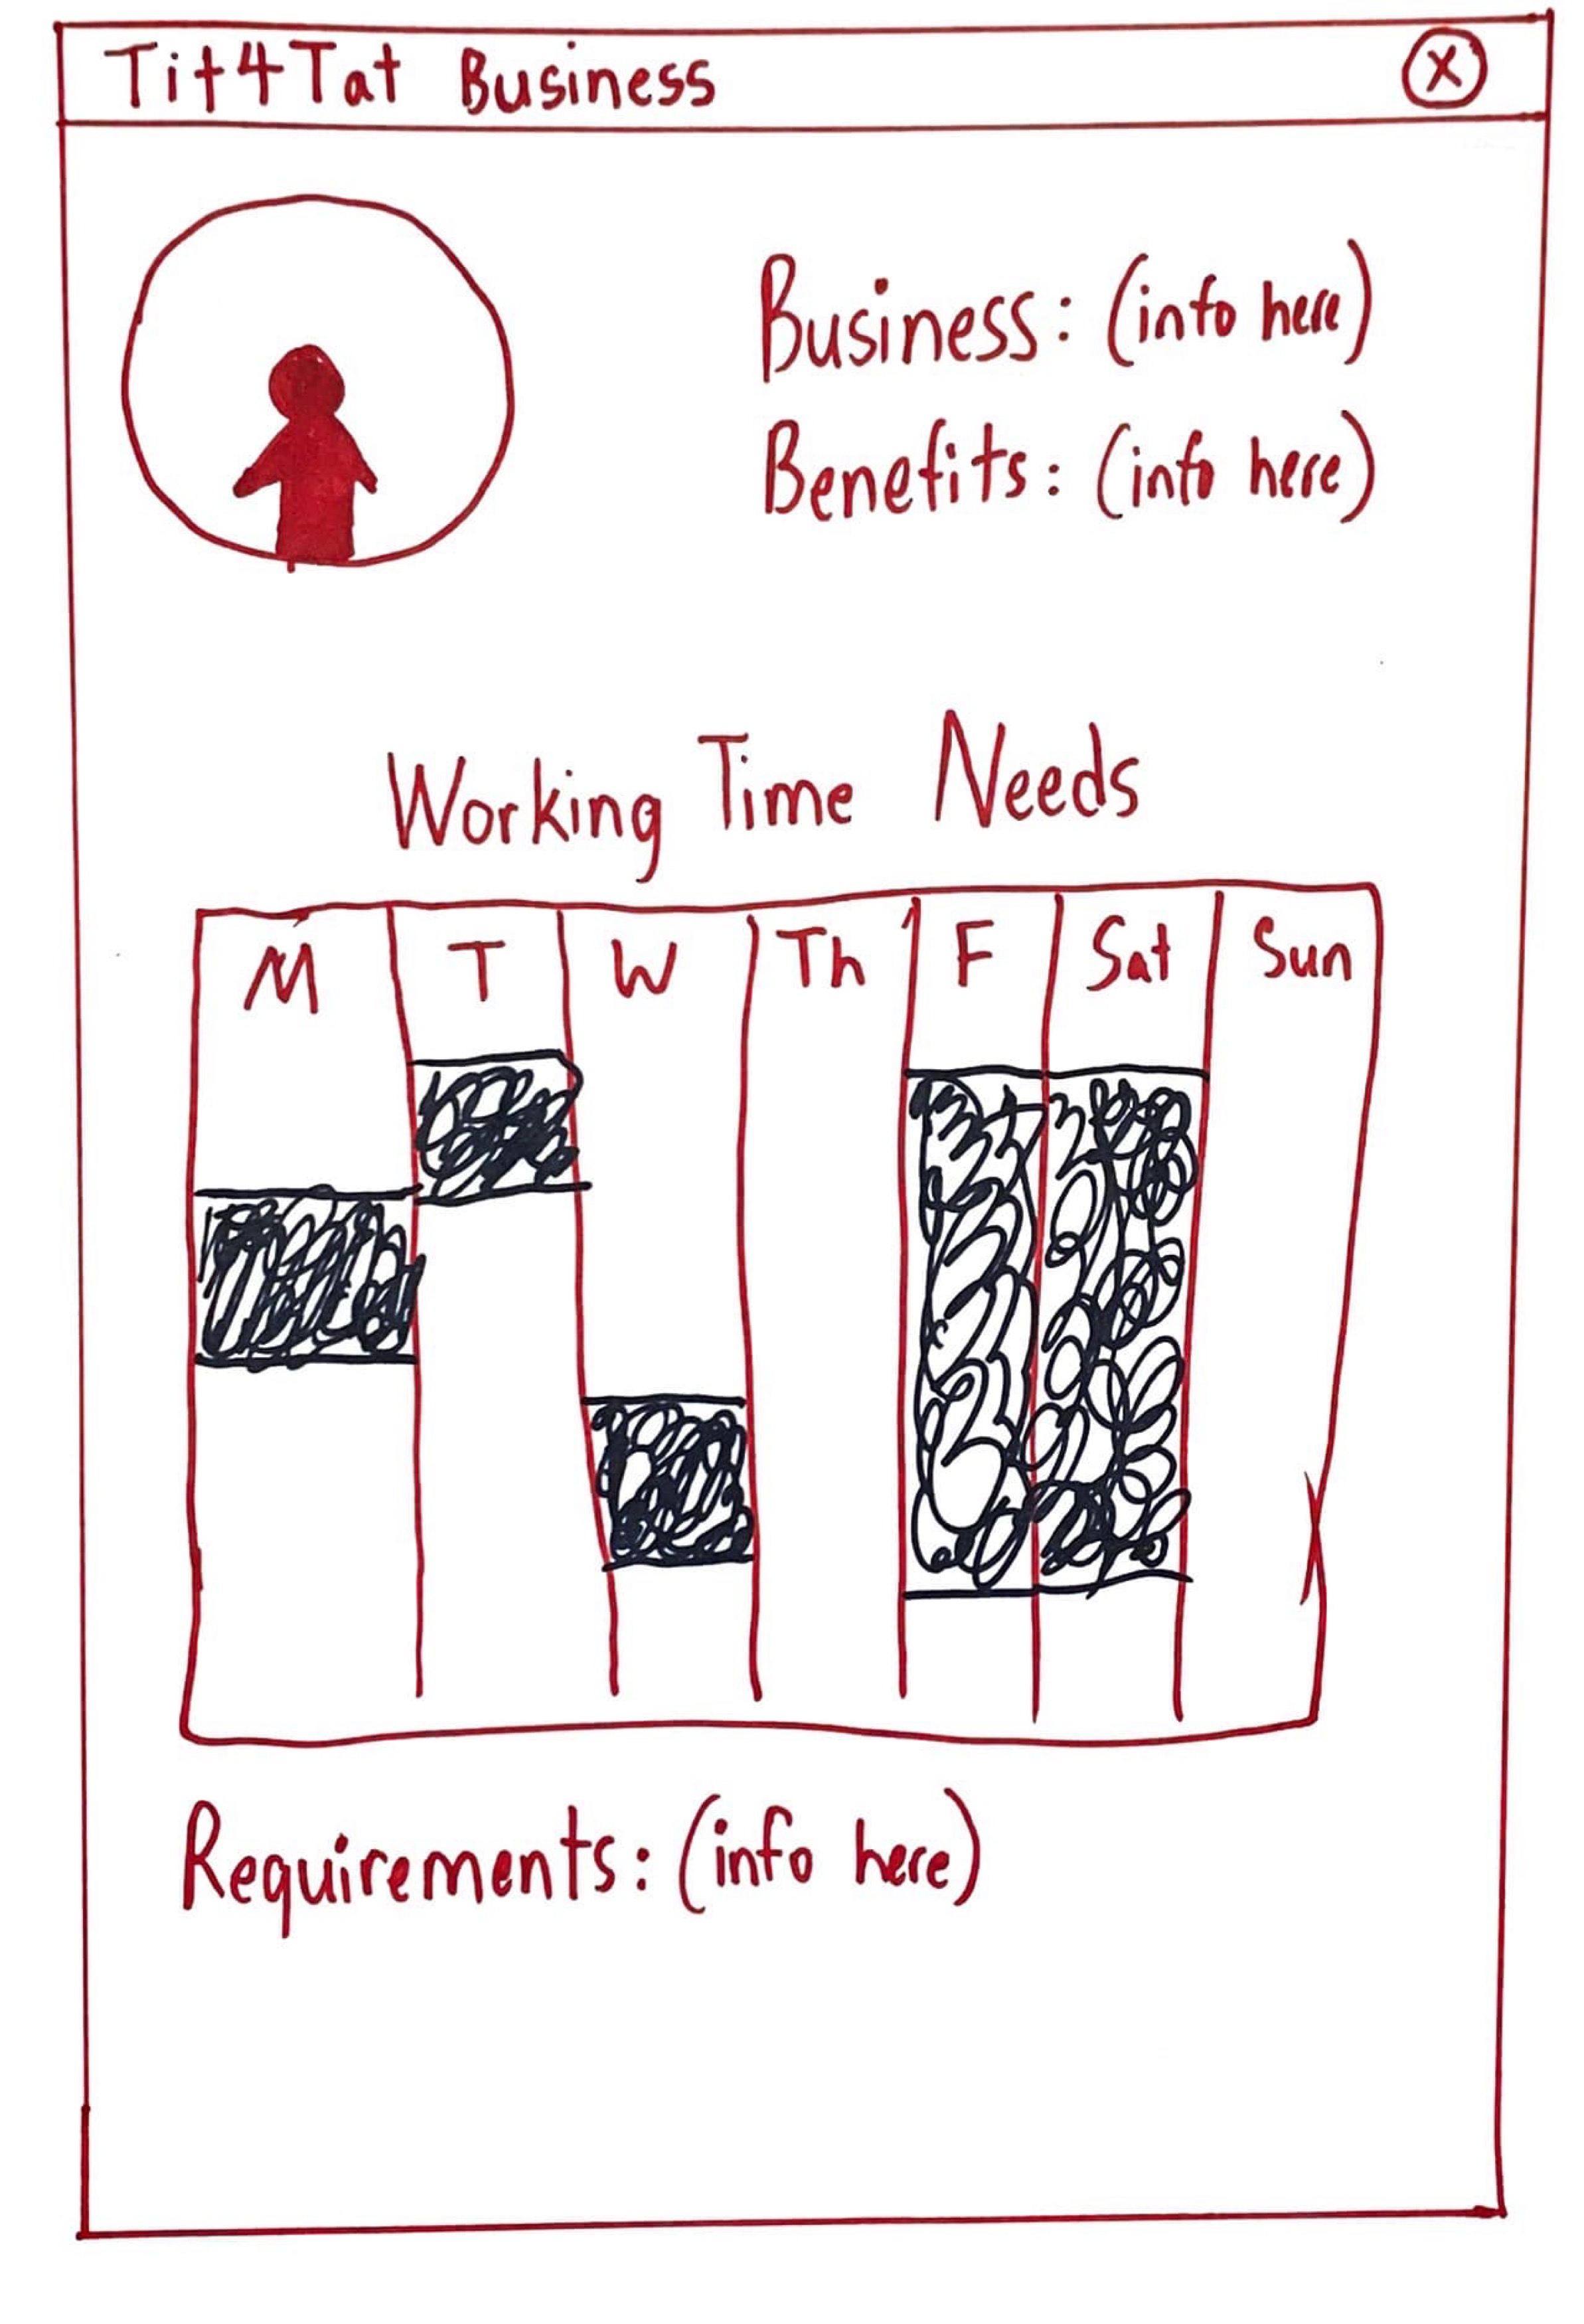 Tit4Tat Business X
Business: (info here)
Benefits: (info here)
Working Time Needs
M T W Th F Sat Sun
Requirements: (info here)